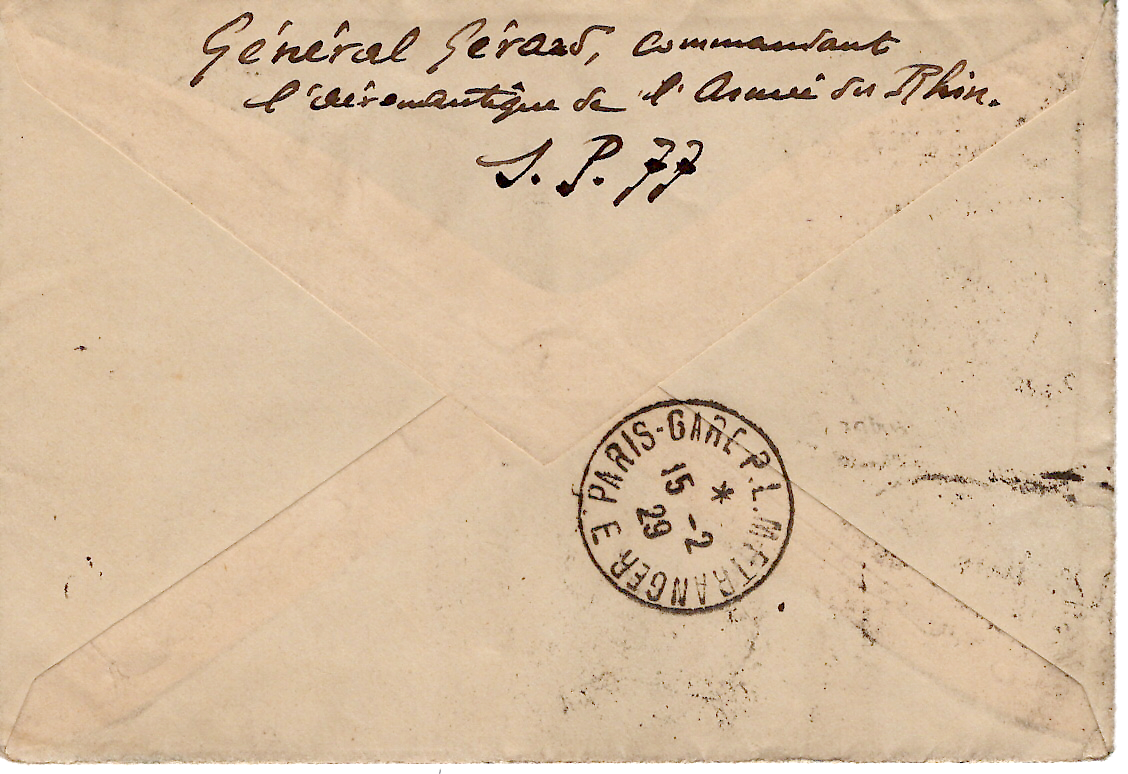 Général Gérard, commandant
l'aéronautique de l'Armée du Rhin.
S. P. 77
PARIS-GARE P.L.M ETRANGER E
*
15 -2
29